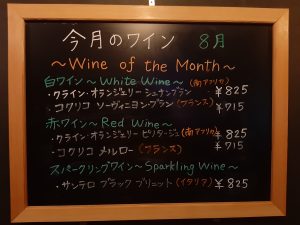 今月のワイン 8月
～Wine of the Month～
白ワイン～White Wine～(南アフリカ)
・クライン・オランジェリー シュナンブラン ¥825
・コクリコ ソーヴィニヨン・ブラン (フランス) ¥715
赤ワイン～Red Wine～
・クライン・オランジェリー ピノタージュ (南アフリカ) ¥825
・コクリコ メルロー (フランス) ¥715
スパークリングワイン～Sparkling Wine～
・サンテロ ブラック ブリュット (イタリア) ¥825